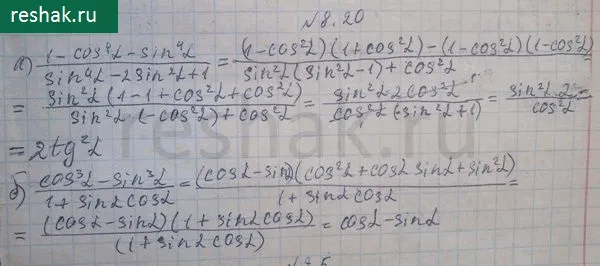 reshak.ru
№8.20
а) (1-cos⁴α-sin⁴α)/(sin⁴α-2sin²α+1) = ((1-cos²α)(1+cos²α)-(1-cos²α)(1-cos²α))/(sin²α(sin²α-1)+cos²α) =
= (sin²α(1-1+cos²α+cos²α))/(sin²α(-cos²α)+cos²α) = (sin²α 2cos²α)/(cos²α(-sin²α+1)) = (sin²α·2)/(cos²α) =
= 2tg²α
б) (cos³α-sin³α)/(1+sinα cosα) = ((cosα-sinα)(cos²α+cosα sinα+sin²α))/(1+sinα cosα) =
= ((cosα-sinα)(1+sinα cosα))/((1+sinα cosα)) = cosα-sinα
reshak.ru